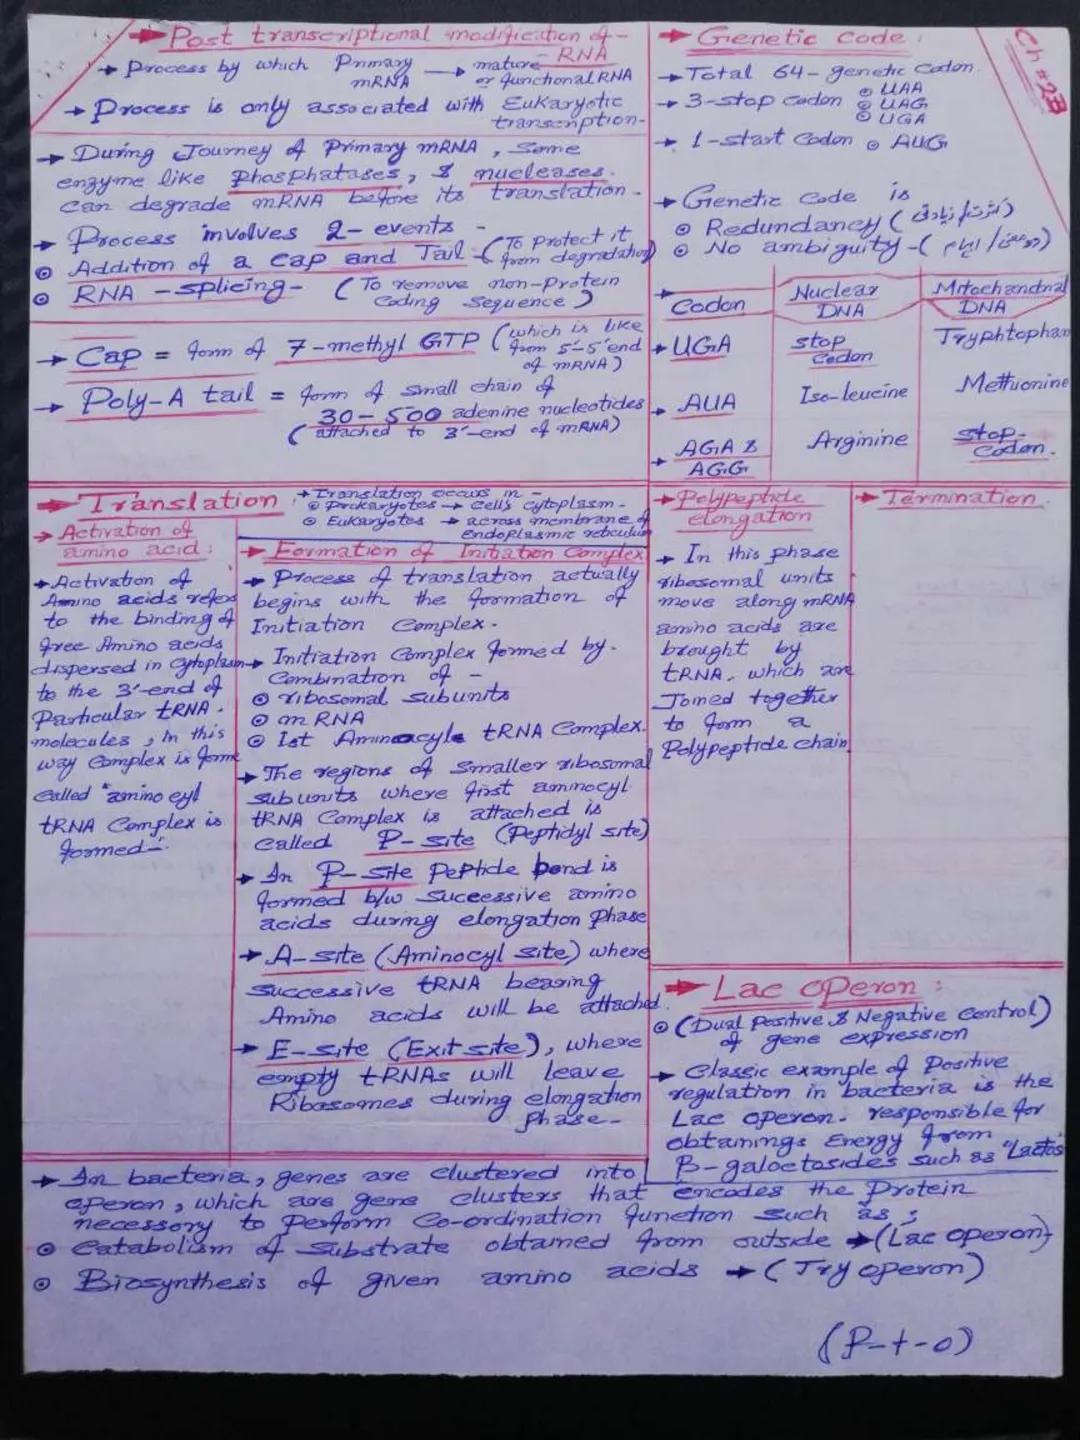 → Post transcriptional modification of - RNA
→ Process by which Primary mRNA → mature or functional RNA
→ Process is only associated with Eukaryotic transcription-
→ During Journey of Primary mRNA, Some
enzyme like Phosphatases, & nucleases.
can degrade mRNA before its translation -
→ Process involves 2-events -
⊙ Addition of a Cap and Tail - (To protect it from degradation)
⊙ RNA - splicing - (To remove non-Protein Coding Sequence)
→ Cap = form of 7-methyl GTP (which is like from 5'-5' end of mRNA)
→ Poly-A tail = form of small chain of
30-500 adenine nucleotides
(attached to 3'-end of mRNA)
→ Genetic code:
Ch # 23
→ Total 64-genetic codon
→ 3-stop codon ⊙ UAA
⊙ UAG
⊙ UGA
→ 1-start Codon ⊙ AUG
→ Genetic Code is
⊙ Redundancy (کثرت/زیادتی)
⊙ No ambiguity -(
→ Codon
Nuclear DNA
Mitochondrial DNA
→ UGA
stop Codon
Tryphtophan
→ AUA
Iso-leucine
Methionine
→ AGA & AGG
Arginine
stop-Codon.
→ Translation
→ Translation occurs in -
⊙ Prokaryotes → Cell's cytoplasm -
⊙ Eukaryotes → across membrane of
Endoplasmic reticulum
→ Activation of
amino acid:
→ Activation of
Amino acids refers
to the binding of
free Amino acids
dispersed in Cytoplasm
to the 3'-end of
Particular tRNA.
molecules, In this
way Complex is forme
Called "amino cyl
tRNA Complex is
formed-"
→ Formation of Initiation Complex
→ Process of translation actually
begins with the formation of
Initiation Complex -
→ Initiation Complex formed by -
Combination of -
⊙ ribosomal subunits
⊙ mRNA
⊙ Ist Aminoacyle tRNA Complex.
→ The regions of Smaller ribosomal
subunits where first aminocyl
tRNA Complex is attached is
Called P-site (Peptidyl site)
→ In P-site Peptide bond is
formed b/w successive amino
acids during elongation Phase
→ A-site (Aminocyl site) where
successive tRNA bearing
Amino acids will be attached.
→ E-site (Exit site), where
empty tRNAs will leave
Ribosomes during elongation
Phase -
→ Polypeptide
elongation
→ In this phase
ribosomal units
move along mRNA
amino acids are
brought by
tRNA, which are
Joined together
to form a
Polypeptide chain
→ Termination.
→ Lac operon:
⊙ (Dual Positive & Negative Control)
of gene expression
→ Classic example of Positive
regulation in bacteria is the
Lac operon. responsible for
obtainings Energy from
B-galoctosides such as "Lactos
→ In bacteria, genes are clustered into
operon, which are gene clusters that encodes the Protein
necessory to Perform Co-ordination function such as;
⊙ Catabolism of substrate obtained from outside → (Lac operon)
⊙ Biosynthesis of given amino acids → (Try operon)
(P-t-o)